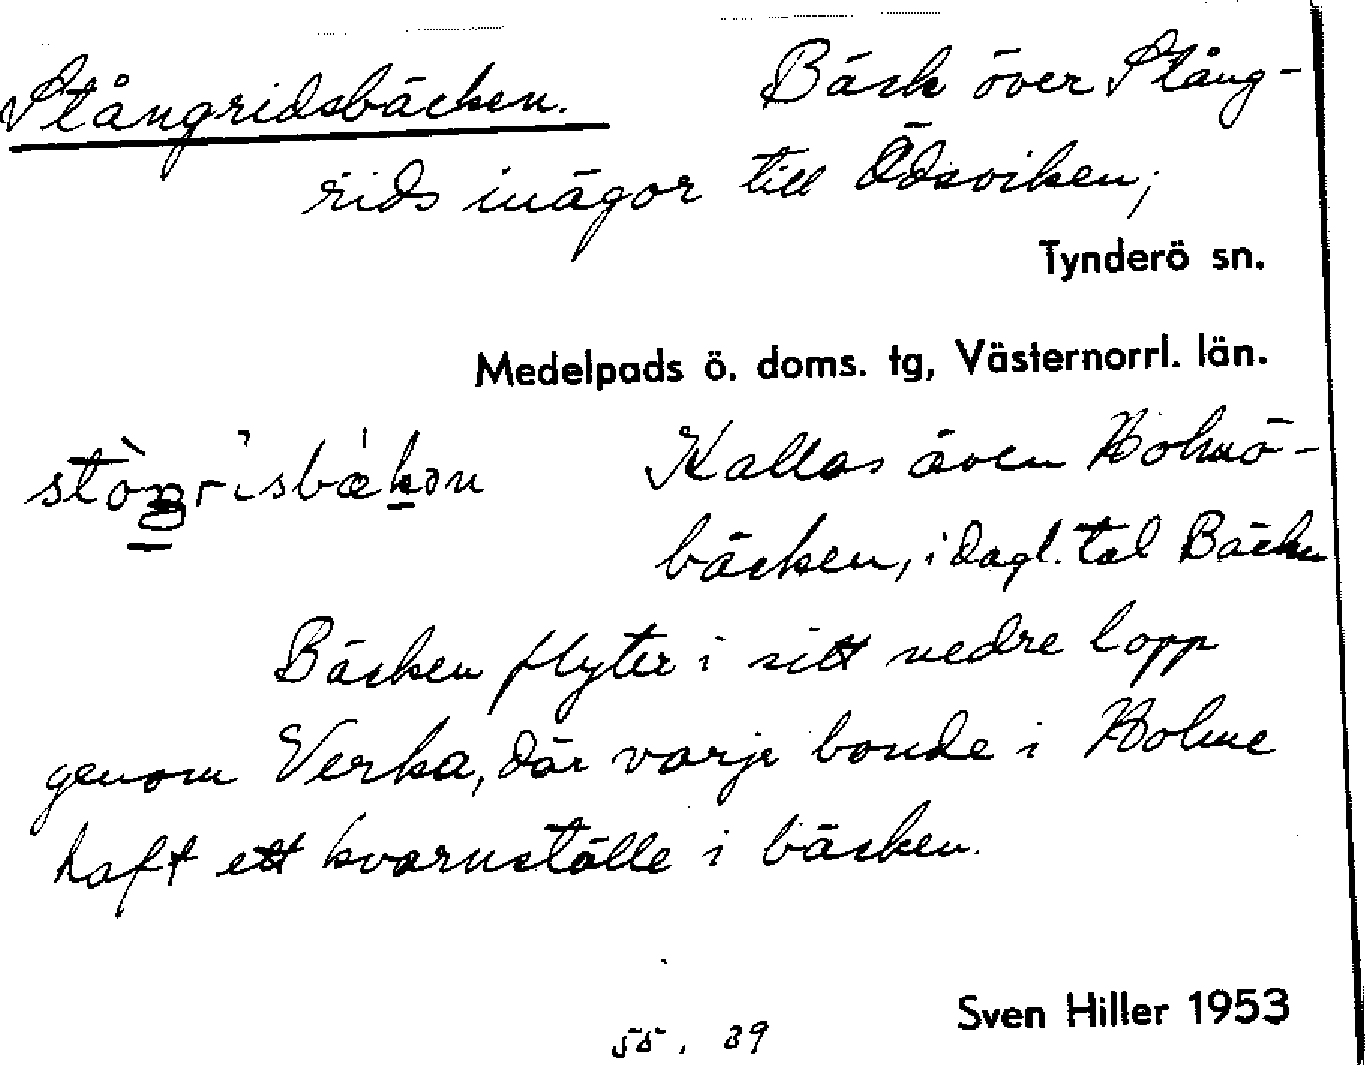 Stångridsbäcken. Bäck över Stång-
rids inägor till Ödsviken;
Tynderö sn.
Medelpads ö. doms. tg, Västernorrl. län.
Kallas även Holmö-
bäcken, i dagl. tal Bäcken
Bäcken flyter i sitt nedre lopp
genom Verka, där varje bonde i Holme
haft ett kvarnställe i bäcken.
Sven Hiller 1953
55. 39